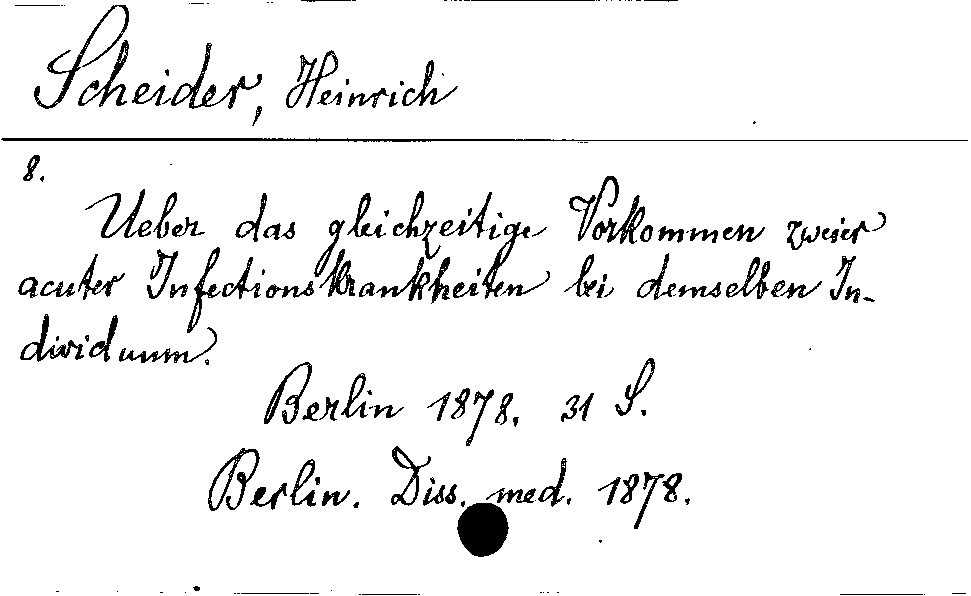 Scheider, Heinrich
8.
Ueber das gleichzeitige Vorkommen zweier
acuter Infectionskrankheiten bei demselben In-
dividuum.
Berlin 1878. 31 S.
Berlin. Diss. med. 1878.